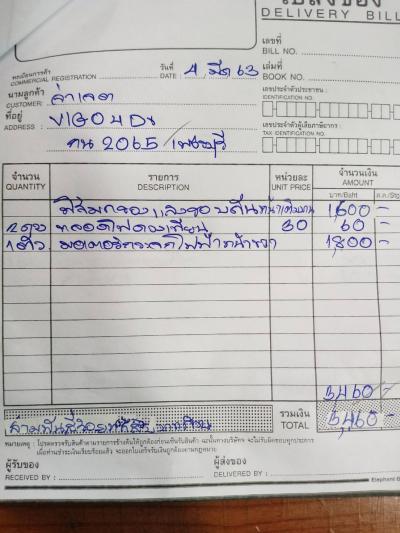 ใบส่งของ
DELIVERY BILL
เลขที่
BILL NO.
ทะเบียนการค้า
COMMERCIAL REGISTRATION
วันที่ 4 มีค 63
DATE
เล่มที่
BOOK NO.
นามลูกค้า
CUSTOMER:
เลขประจำตัวประชาชน
IDENTIFICATION NO.
ที่อยู่ VIGO 4Dr
ADDRESS : กน 2065 / เพชรบุรี
เลขประจำตัวผู้เสียภาษีอากร
TAX IDENTIFICATION NO.
จำนวน รายการ หน่วยละ จำนวนเงิน
QUANTITY DESCRIPTION UNIT PRICE AMOUNT
บาท/Baht ส.ต./Stg
1,600 -
2 ดวง หลอดไฟ 30 60 -
1 ตัว มอเตอร์กระจกไฟฟ้าหน้าขวา 1,800 -
3,460 -
รวมเงิน 3,460 -
TOTAL
หมายเหตุ : โปรดตรวจรับสินค้าตามรายการข้างต้นให้ถูกต้องก่อนเซ็นรับสินค้า ฉะนั้นทางบริษัทฯ จะไม่รับผิดชอบทุกประการ
เมื่อท่านชำระเงินเรียบร้อยแล้ว จะออกใบเสร็จรับเงินถูกต้องตามกฎหมาย
ผู้รับของ ผู้ส่งของ
RECEIVED BY : DELIVERED BY :
Elephant B